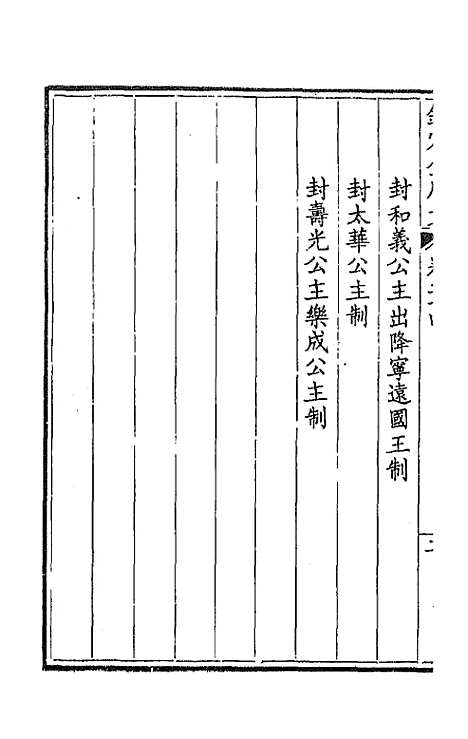 封和義公主出降寧遠國王制
封太華公主制
封壽光公主樂成公主制